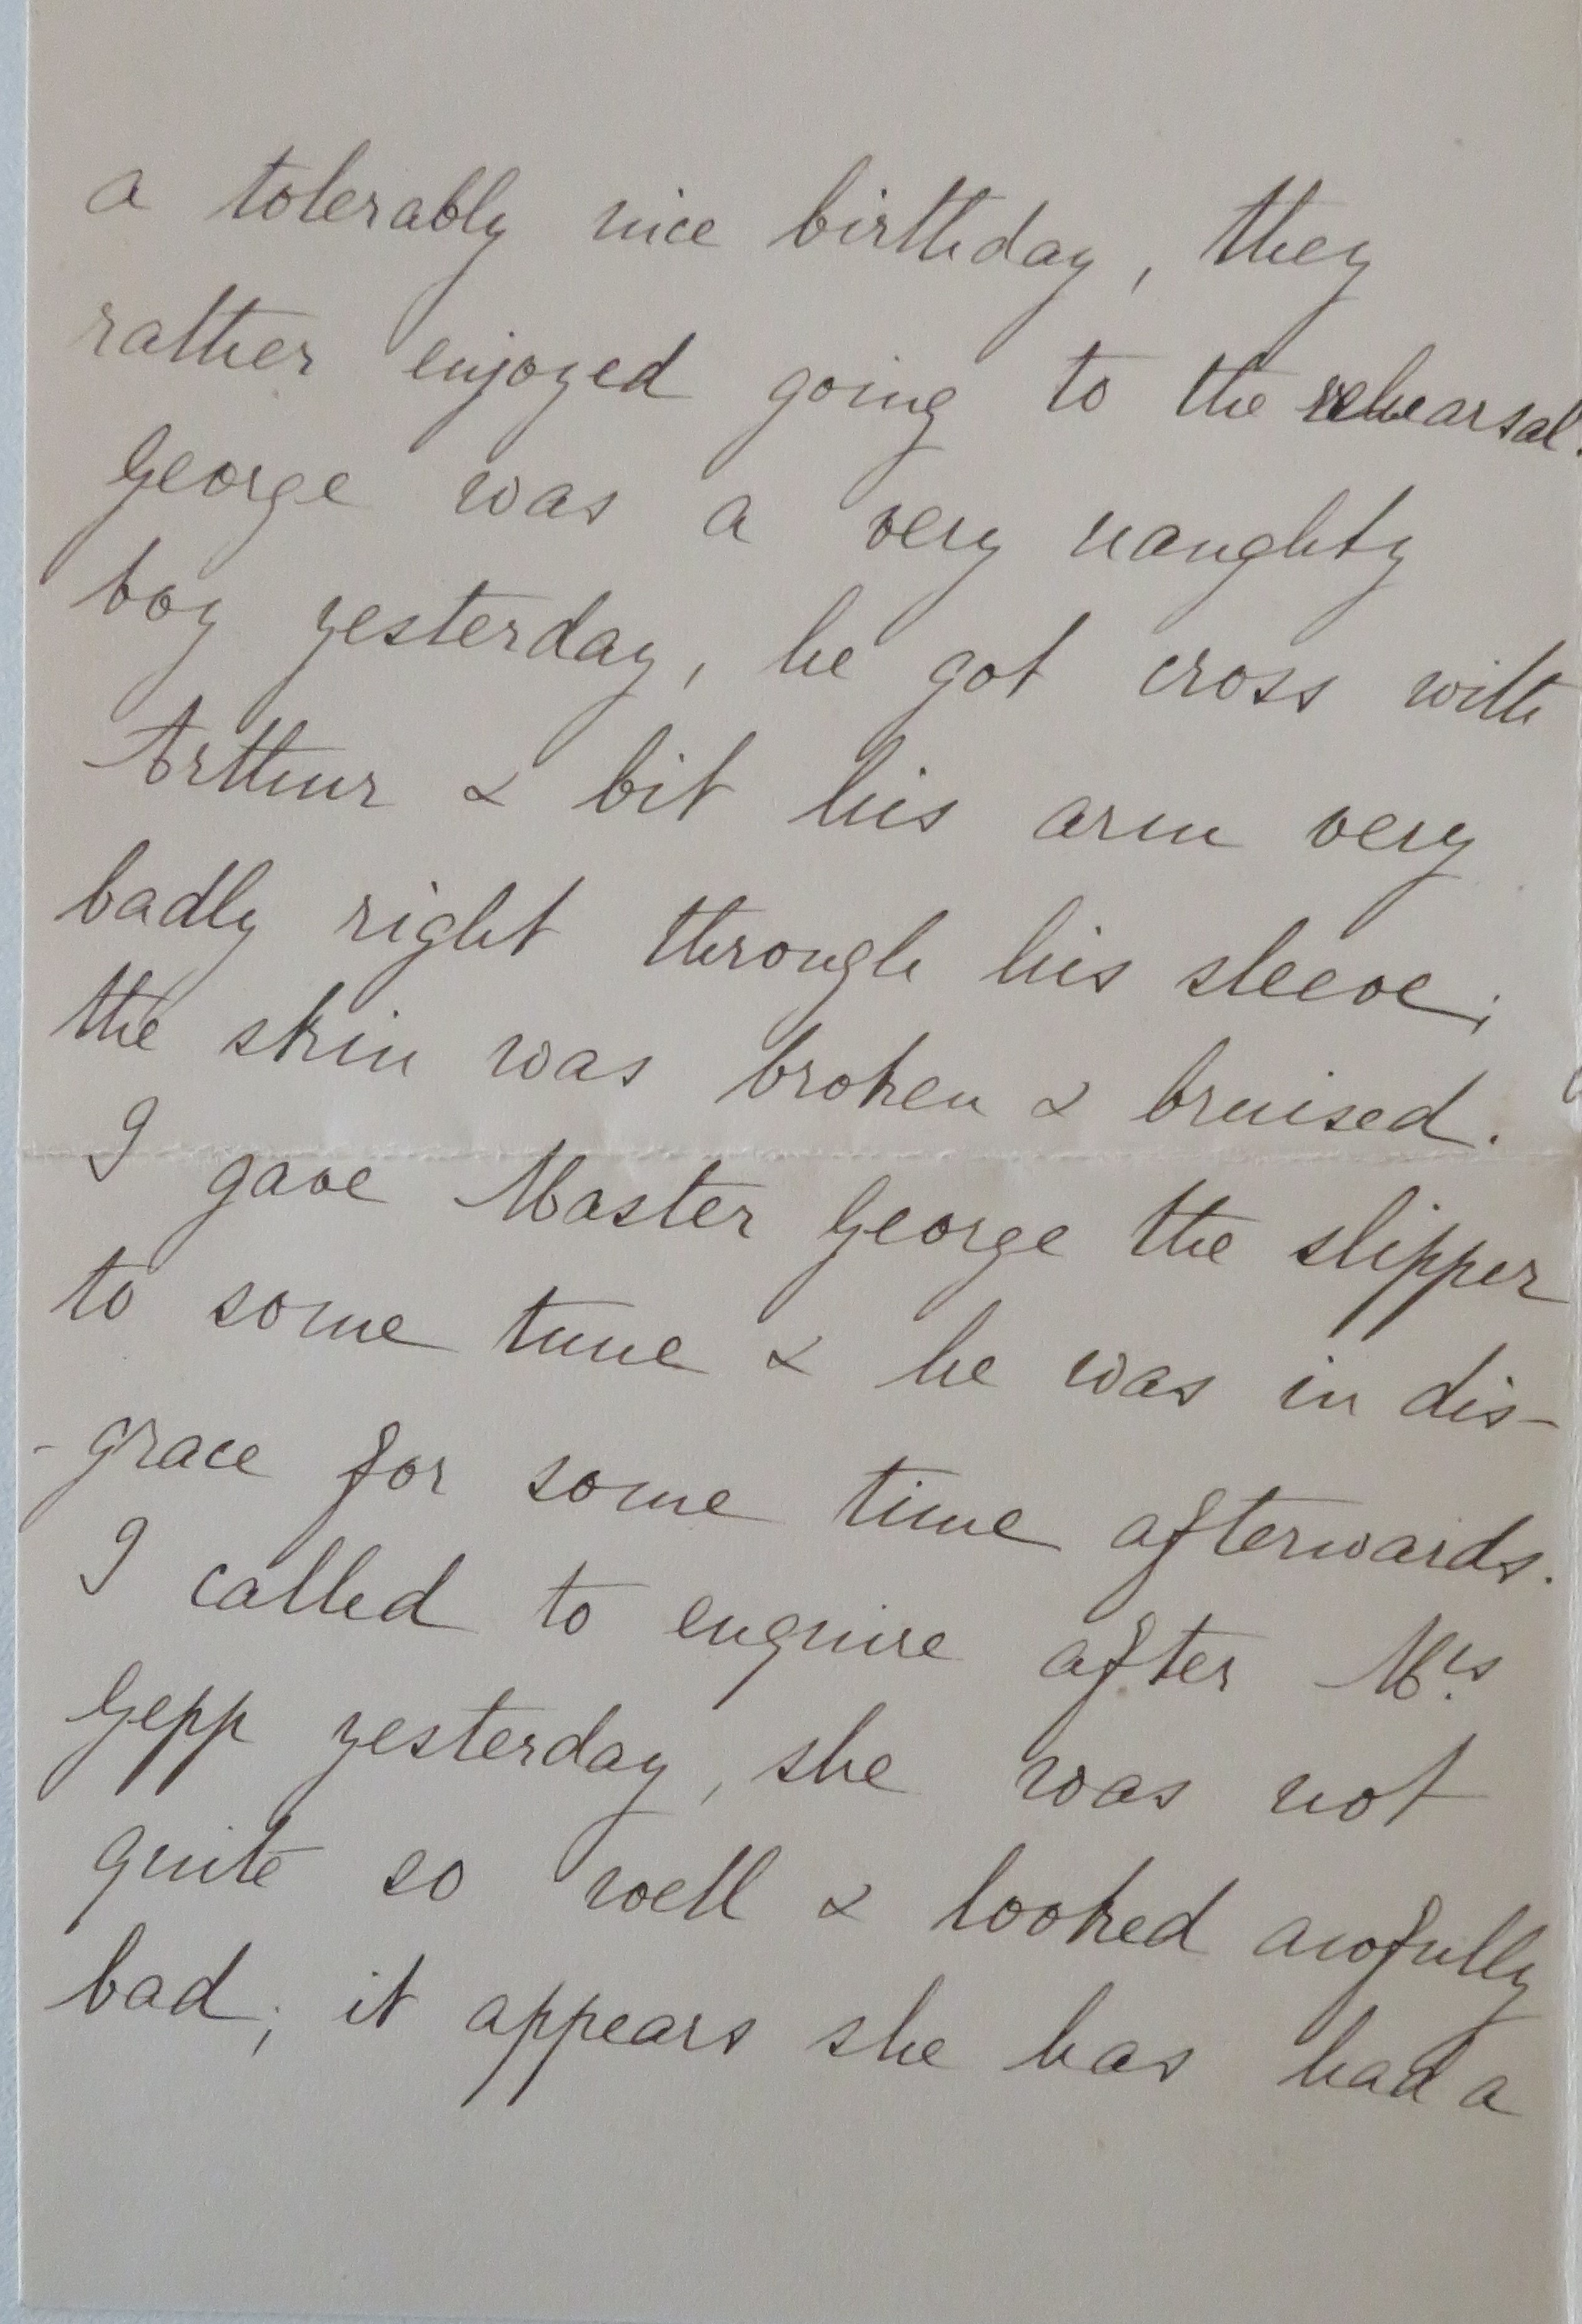 a tolerably nice birthday, they
rather enjoyed going to the rehearsal.
George was a very naughty
boy yesterday, he got cross with
Arthur & bit his arm very
badly right through his sleeve;
the skin was broken & bruised.
I gave Master George the slipper
to some tune & he was in dis-
-grace for some time afterwards.
I called to enquire after Mrs.
Gepp yesterday, she was not
quite so well & looked awfully
bad; it appears she has had a